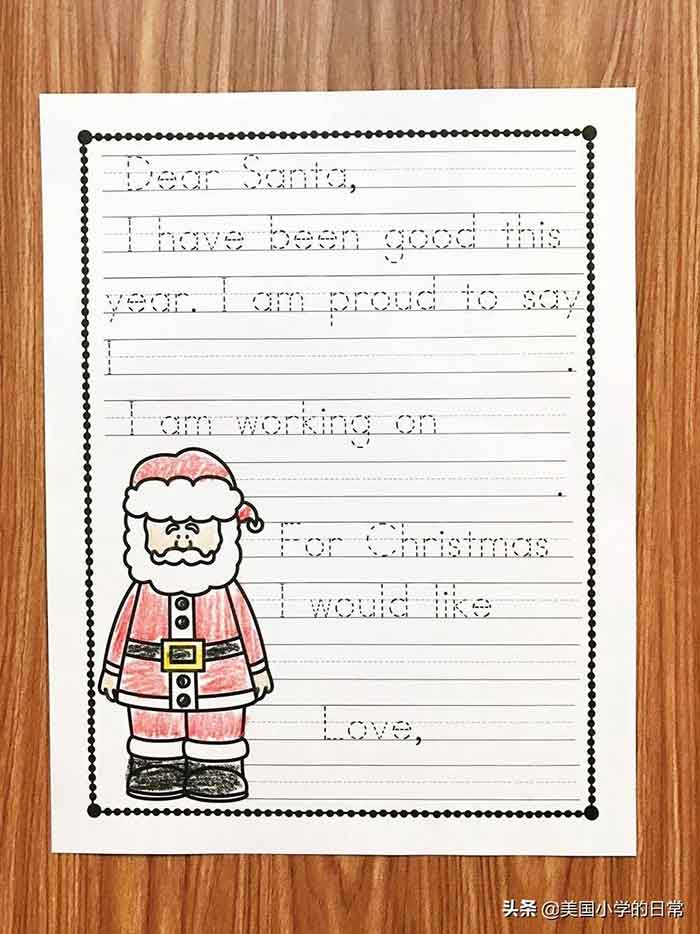 Dear Santa,
I have been good this
year. I am proud to say
I .
I am working on
.
For Christmas
I would like
Love,
头条 @美国小学的日常